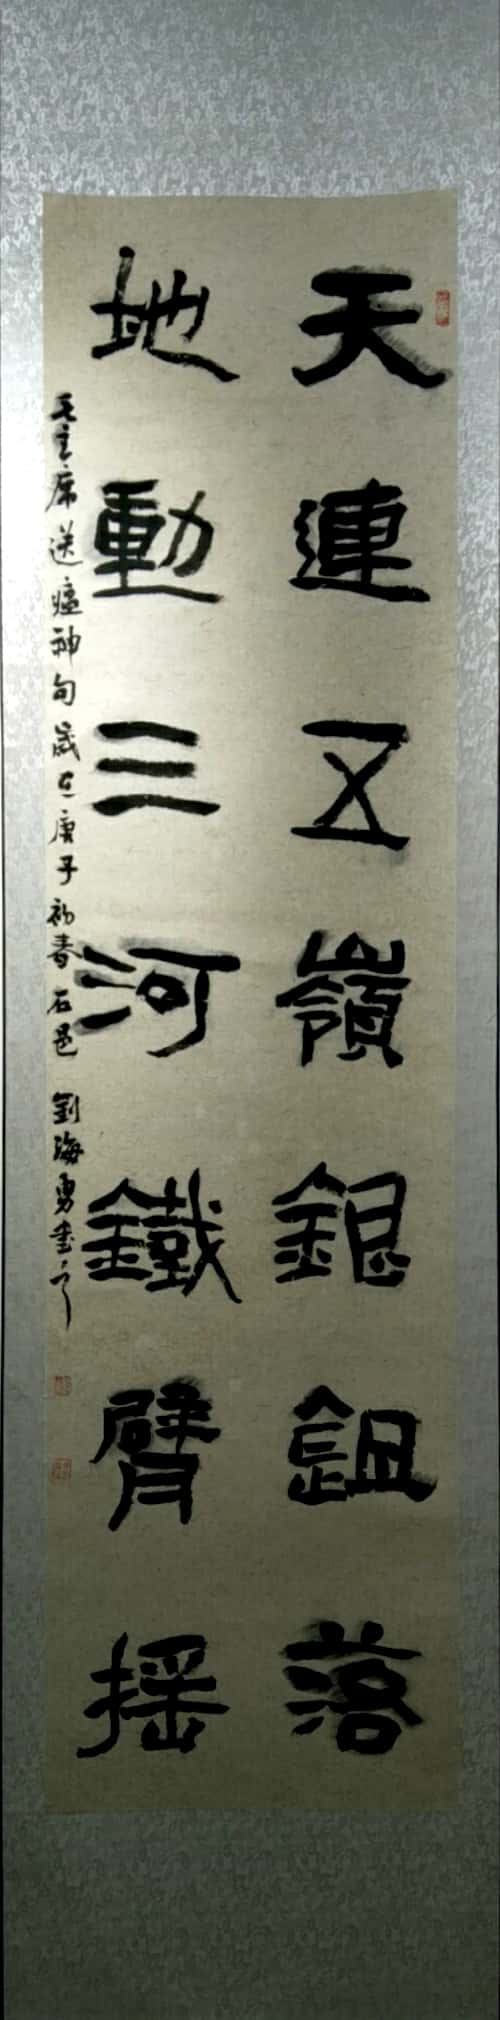 天連五嶺銀鉏落
地動三河鐵臂摇
毛主席送瘟神句歲在庚子初春石邑劉海勇書